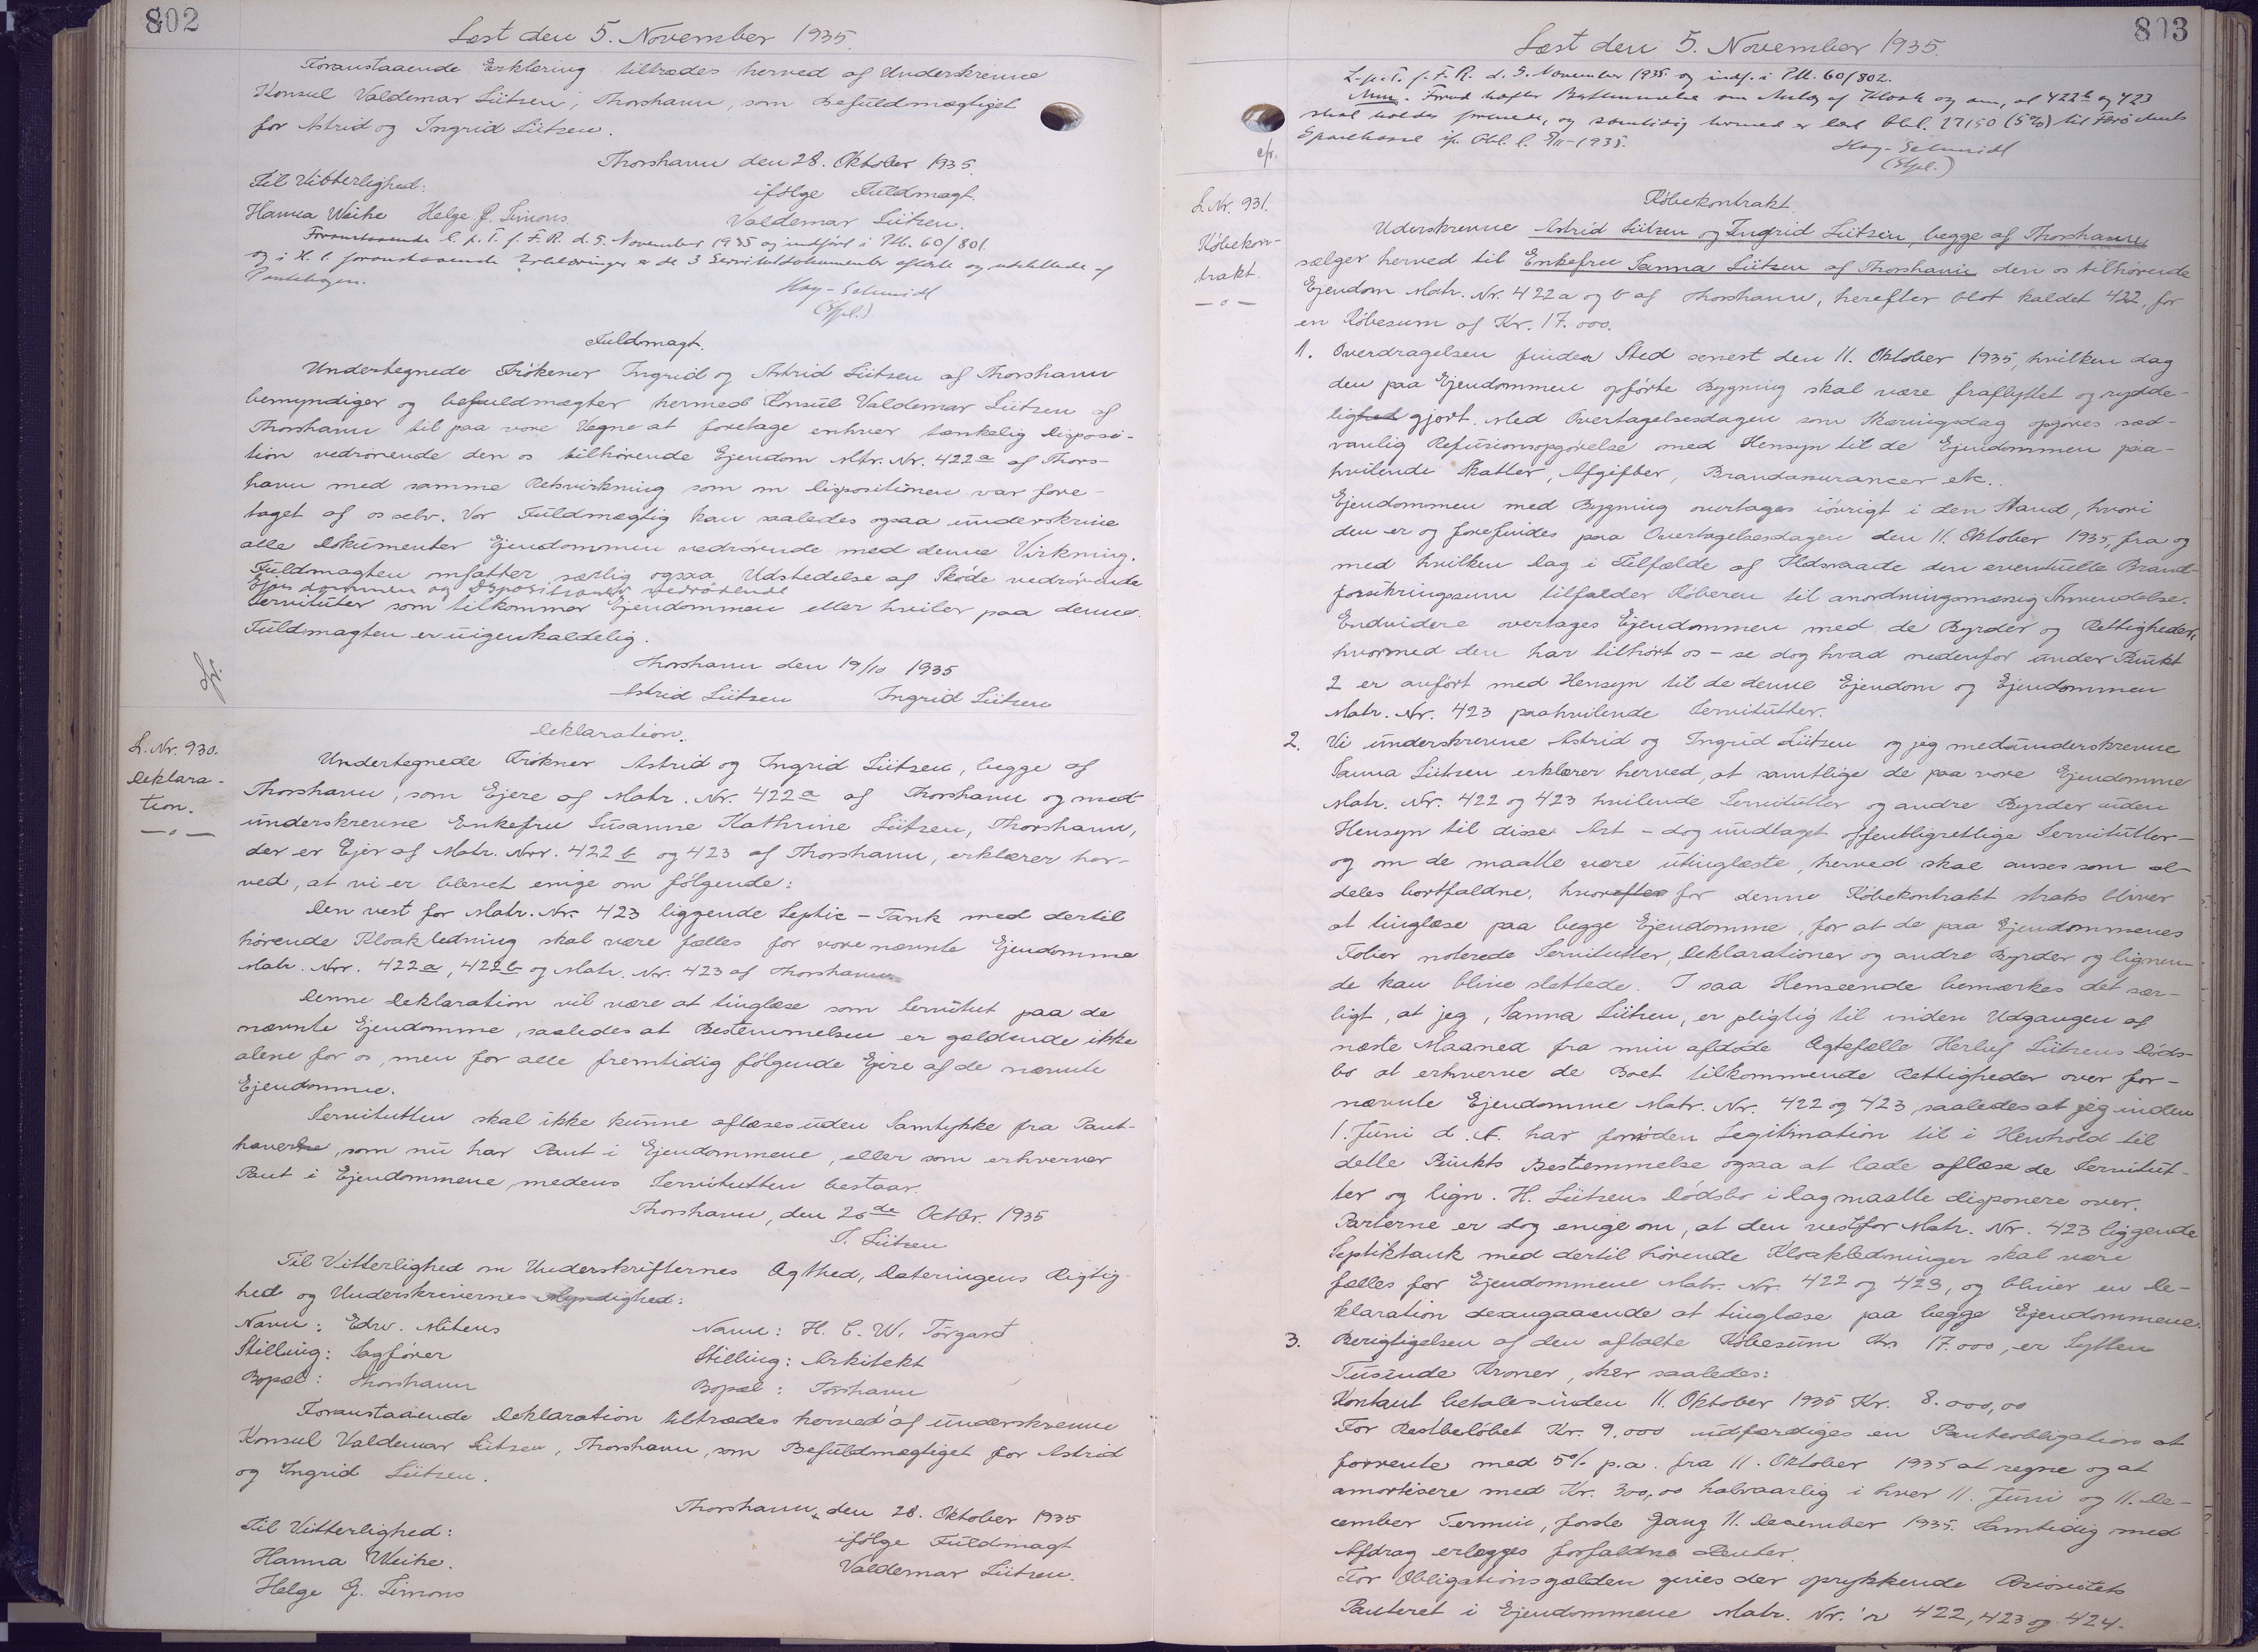 802
Læst den 5. November 1935.
Foranstaaende Erklæring tiltrædes herved af Underskrevne
Konsul Valdemar Lützen, Thorshavn, som Befuldmægtiget
for Astrid og Ingrid Lützen.
Thorshavn den 28. Oktober 1935.
Til Vitterlighed: ifølge Fuldmagt.
Hanna Weihe Helge J. Simons Valdemar Lützen.
Foranstaaende l. p. T. f. F. R. d. 5. November 1935 og indført i Ptl. 60/801.
og i H. t. foranstaaende Erklæringer er de 3 Servitutdokumenter aflæste og udslettede af
Pantebogen. Høy-Schmidt
(Spl.)
Fuldmagt.
Undertegnede Frökener Ingrid og Astrid Lützen af Thorshavn
bemyndiger og befuldmægter hermed Konsul Valdemar Lützen af
Thorshavn til paa vore Vegne at foretage enhver tænkelig Disposi-
tion vedrørende den os tilhørende Ejendom Mtr. Nr. 422a af Thors-
havn med samme Retsvirkning som om Dispositionen var fore-
taget af os selv. Vor Fuldmægtig kan saaledes ogsaa underskrive
alle Dokumenter Ejendommen vedrørende med denne Virkning.
Fuldmagten omfatter særlig ogsaa Udstedelse af Sköde vedrørende
Ejendommen og Dispositioner vedrörende
Servituter som tilkommer Ejendommen eller hviler paa denne.
Fuldmagten er uigenkaldelig.
Thorshavn den 19/10 1935
Astrid Lützen Ingrid Lützen
L. Nr. 930.
Deklara-
tion.
—o—
Deklaration.
Undertegnede Frökner Astrid og Ingrid Lützen, begge af
Thorshavn, som Ejere af Matr. Nr. 422a af Thorshavn og med
underskrevne Enkefru Susanne Kathrine Lützen, Thorshavn,
der er Ejer af Matr. Nrr. 422b og 423 af Thorshavn, erklærer her-
ved, at vi er blevet enige om følgende:
Den vest for Matr. Nr. 423 liggende Septic-Tank med dertil
hørende Kloakledning skal være fælles for vore nævnte Ejendomme
Matr. Nrr. 422a, 422b og Matr. Nr. 423 af Thorshavn
Denne Deklaration vil være at tinglæse som Servitut paa de
nævnte Ejendomme, saaledes at Bestemmelsen er gældende ikke
alene for os, men for alle fremtidig følgende Ejere af de nævnte
Ejendomme.
Servitutten skal ikke kunne aflæses uden Samtykke fra Pant-
havere, som nu har Pant i Ejendommene, eller som erhverver
Pant i Ejendommene, medens Servitutten bestaar.
Thorshavn, den 26de Octbr. 1935
S. Lützen
Til Vitterlighed om Underskrifternes Ægthed, Dateringens Rigtig-
hed og Underskrivernes Myndighed:
Navn: Edw. Mitens Navn: H. C. W. Tórgarð
Stilling: Sagfører Stilling: Arkitekt
Bopæl: Thorshavn Bopæl: Tórshavn
Foranstaaende Deklaration tiltrædes herved af underskrevne
Konsul Valdemar Lützen, Thorshavn, som Befuldmægtiget for Astrid
og Ingrid Lützen.
Thorshavn, den 28. Oktober 1935
Til Vitterlighed: ifølge Fuldmagt
Hanna Weihe. Valdemar Lützen.
Helge J. Simons
803
Læst den 5. November 1935.
L. p. T. f. F. R. d. 5. November 1935 og indf. i Ptl. 60/802.
Anm. Forud hæfter Bestemmelse om Anlæg af Kloak og om, at 422b og 423
skal holdes forenede, og samtidig hermed er læst Obl. 27150 (5%) til Færø Amts
Sparekasse if. Obl. l. 5/11-1935. Høy-Schmidt
(Spl.)
cfr.
L. Nr. 931.
Købekon-
trakt.
—o—
Købekontrakt.
Underskrevne Astrid Lützen og Ingrid Lützen, begge af Thorshavn
sælger herved til Enkefru Sanna Lützen af Thorshavn den os tilhørende
Ejendom Matr. Nr. 422a og b af Thorshavn, herefter blot kaldet 422, for
en Købesum af Kr. 17.000.
1. Overdragelsen finder Sted senest den 11. Oktober 1935, hvilken dag
den paa Ejendommen opførte Bygning skal være fraflyttet og rydde-
lighed gjort. Med Overtagelsesdagen som Skæringsdag opgøres sæd-
vanlig Refusionsopgørelse med Hensyn til de Ejendommen paa-
hvilende Skatter, Afgifter, Brandassurancer etc..
Ejendommen med Bygning overtages iøvrigt i den Stand, hvori
den er og forefindes paa Overtagelsesdagen den 11. Oktober 1935, fra og
med hvilken Dag i Tilfælde af Ildsvaade den eventuelle Brand-
forsikringssum tilfalder Køberen til anordningsmæssig Anvendelse.
Endvidere overtages Ejendommen med de Byrder og Rettigheder,
hvormed den har tilhørt os - se dog hvad nedenfor under Punkt
2 er anført med Hensyn til de denne Ejendom og Ejendommen
Matr. Nr. 423 paahvilende Servitutter.
2. Vi underskrevne Astrid og Ingrid Lützen og jeg medunderskrevne
Sanna Lützen erklærer herved, at samtlige de paa vore Ejendomme
Matr. Nr. 422 og 423 hvilende Servitutter og andre Byrder uden
Hensyn til disses Art - dog undtaget offentligretlige Servitutter -
og om de maatte være utinglæste, herved skal anses som al-
deles bortfaldne, hvorefter for denne Købekontrakt straks bliver
at tinglæse paa begge Ejendomme, for at de paa Ejendommenes
Folier noterede Servitutter, Deklarationer og andre Byrder og lignen-
de kan blive slettede. I saa Henseende bemærkes det sær-
ligt, at jeg, Sanna Lützen, er pligtig til inden Udgangen af
næste Maaned fra min afdøde Ægtefælle Herluf Lützens Døds-
bo at erhverve de Boet tilkommende Rettigheder over for-
nævnte Ejendomme Matr. Nr. 422 og 423, saaledes at jeg inden
1. Juni d. A. har fornøden Legitimation til i Henhold til
dette Punkts Bestemmelse ogsaa at lade aflæse de Servitut-
ter og lign. H. Lützens Dødsbo i Dag maatte disponere over.
Parterne er dog enige om, at den vest for Matr. Nr. 423 liggende
Septiktank med dertil hørende Kloakledninger skal være
fælles for Ejendommene Matr. Nr. 422 og 423, og bliver en De-
klaration desangaaende at tinglæse paa begge Ejendommene.
3. Berigtigelsen af den aftalte Købesum Kr. 17.000, er Sytten
Tusinde Kroner, sker saaledes:
Kontant betales inden 11. Oktober 1935 Kr. 8.000,00
For Restbeløbet Kr. 9.000 udfærdiges en Panteobligation at
forrente med 5% p.a. fra 11. Oktober 1935 at regne og at
amortisere med Kr. 300,00 halvaarlig i hver 11. Juni og 11. De-
cember Termin, første Gang 11. December 1935. Samtidig med
Afdrag erlægges forfaldne Renter.
For Obligationsgælden gives der oprykkende Prioritets
Panteret i Ejendommene Matr. Nr.'e 422, 423 og 424.